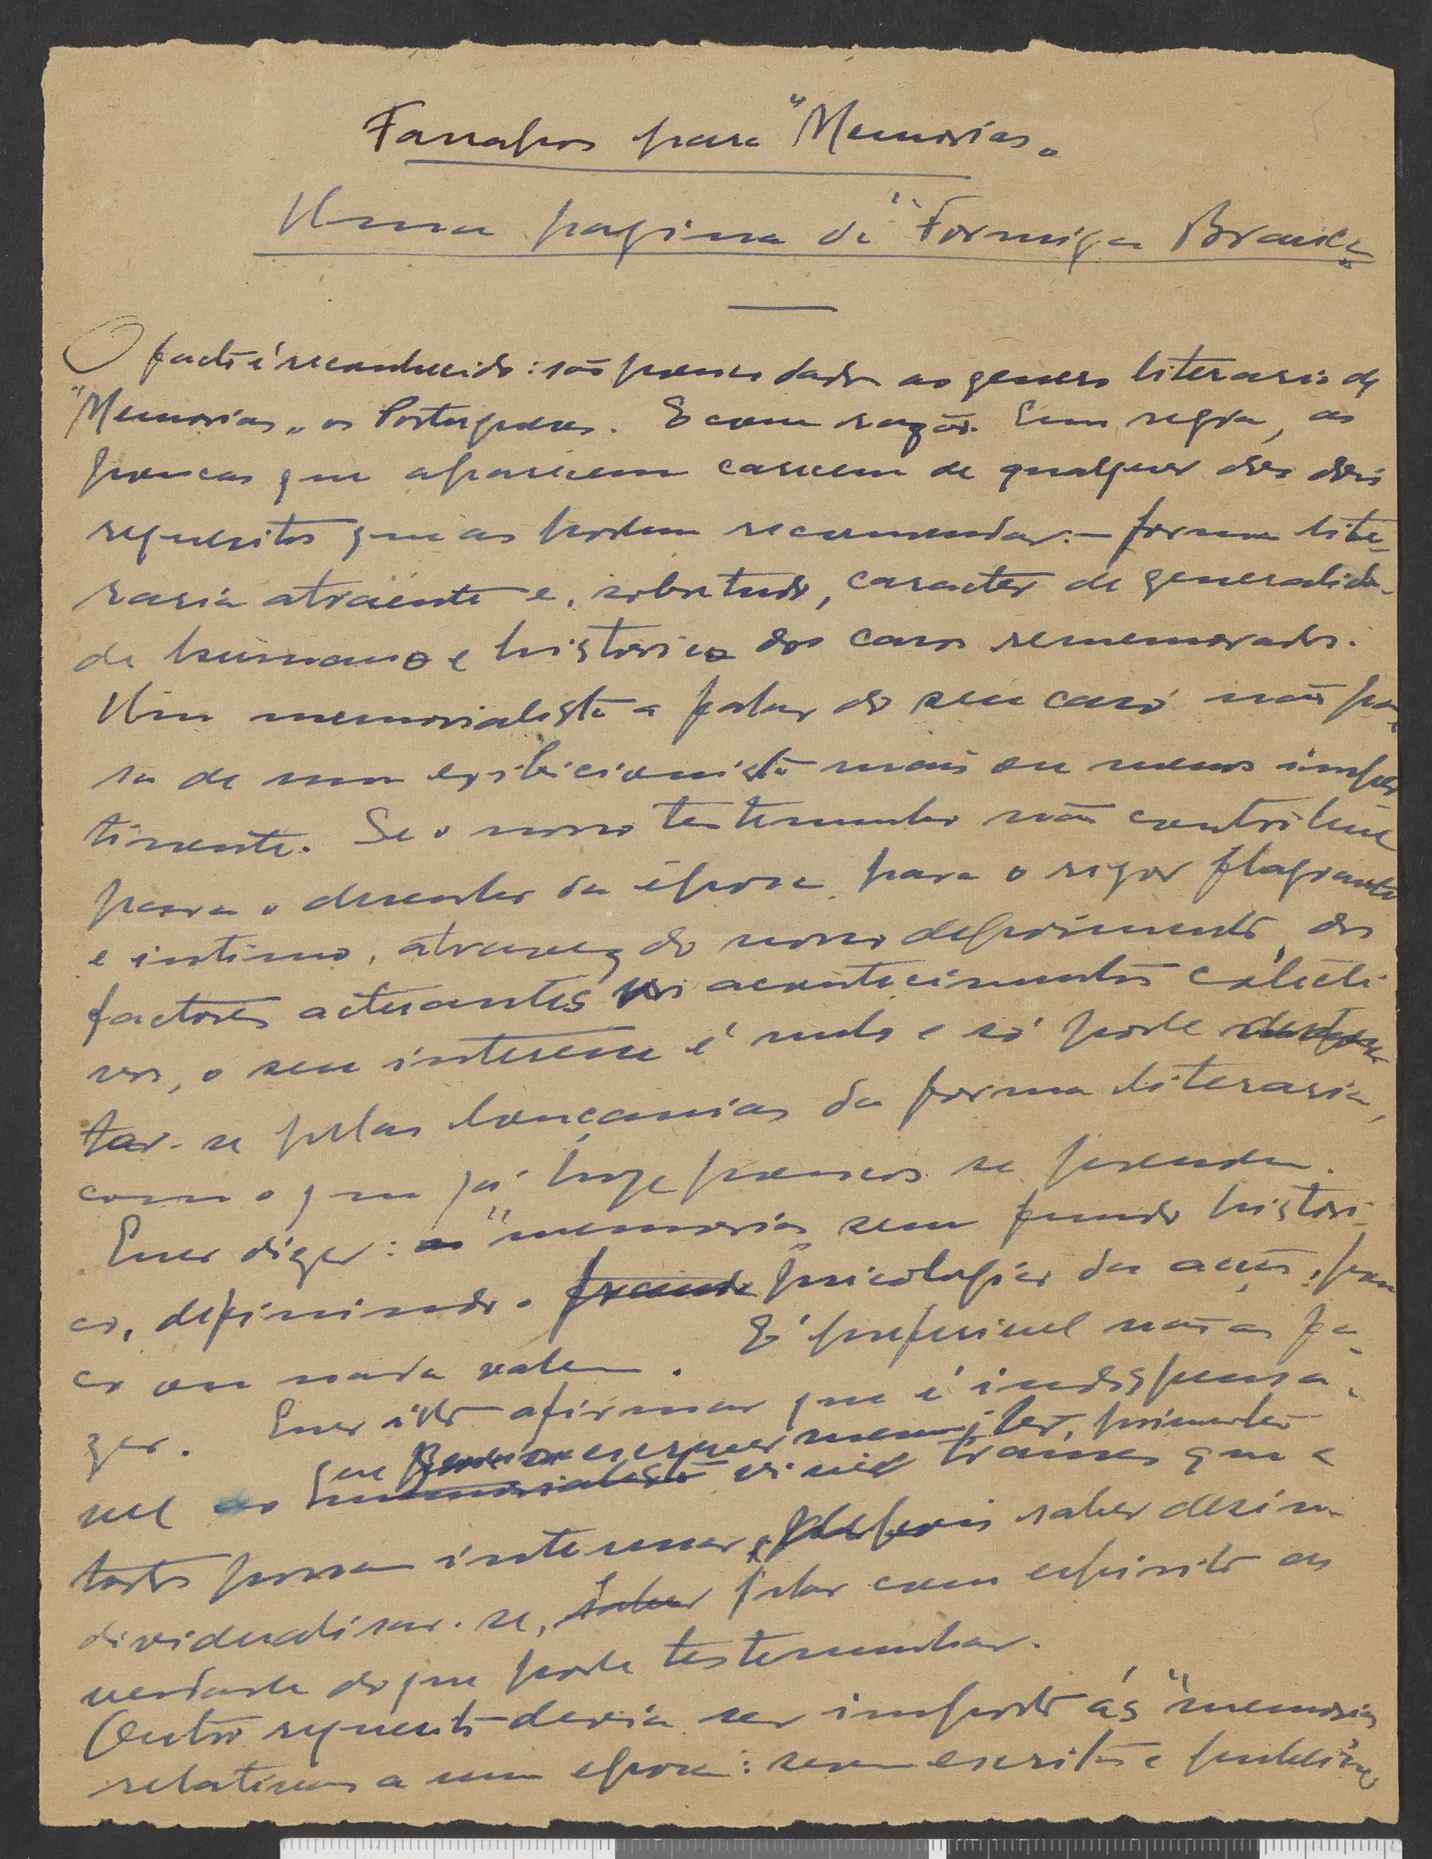 Farrapos para "Memorias"
Uma pagina da "Formiga Branca"
O facto é reconhecido: são pouco dados ao genero literario de
"Memorias" os Portugueses. E com razão. Em regra, as
poucas que aparecem carecem de qualquer dos dois
requesitos que as podem recomendar: - forma lite-
raria atraente e, sobretudo, caracter de generalida-
de humano e historico dos casos rememorados.
Um memorialista a falar do seu caso não pas-
sa de um exibicionista mais ou menos imper-
tinente. Se o nosso testemunho não contribue
para o desenho da época, para o rigor flagrante
e intimo, atravez do nosso depoimento, dos
factores actuantes nos acontecimentos coleti-
vos, o seu interesse é nulo e só pode
tar-se pelas louçanias da forma literaria,
com o que já hoje poucos se prendem.
Quer dizer: as "memorias" sem fundo histori-
co, definindo a psicologia da acção, pou-
co ou nada valem. É preferivel não as fa-
zer. Quer isto afirmar que é indispensa-
vel que quem as escrever primeiro
viver transes que a
todos possam interessar, e depois saber desin-
dividualisar-se, falar com espirito de
verdade do que pode testemunhar.
Outro requesito devia ser imposto ás "memorias"
relativas a uma epoca: serem escritas e publica